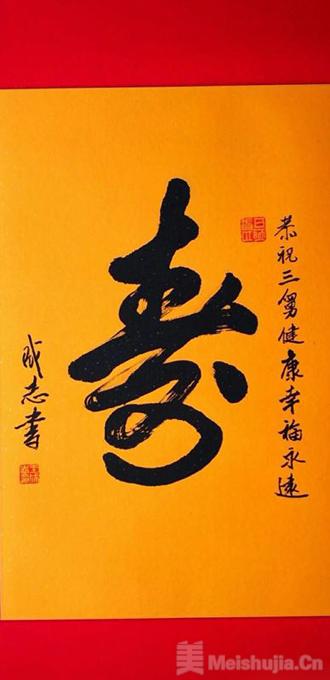 恭祝三舅健康幸福永遠
寿
成志書
美 Meishujia.Cn